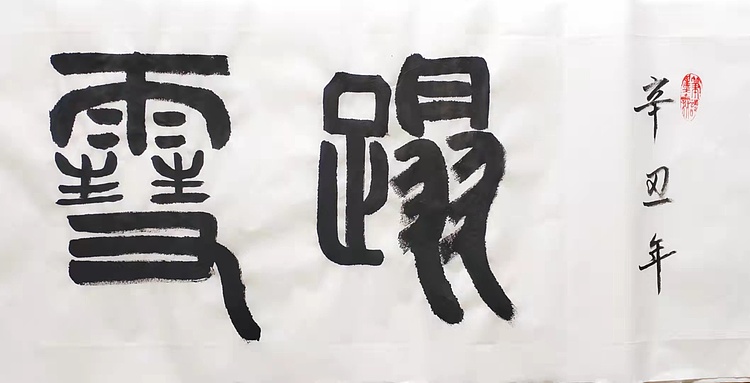 辛丑年
蹋雪